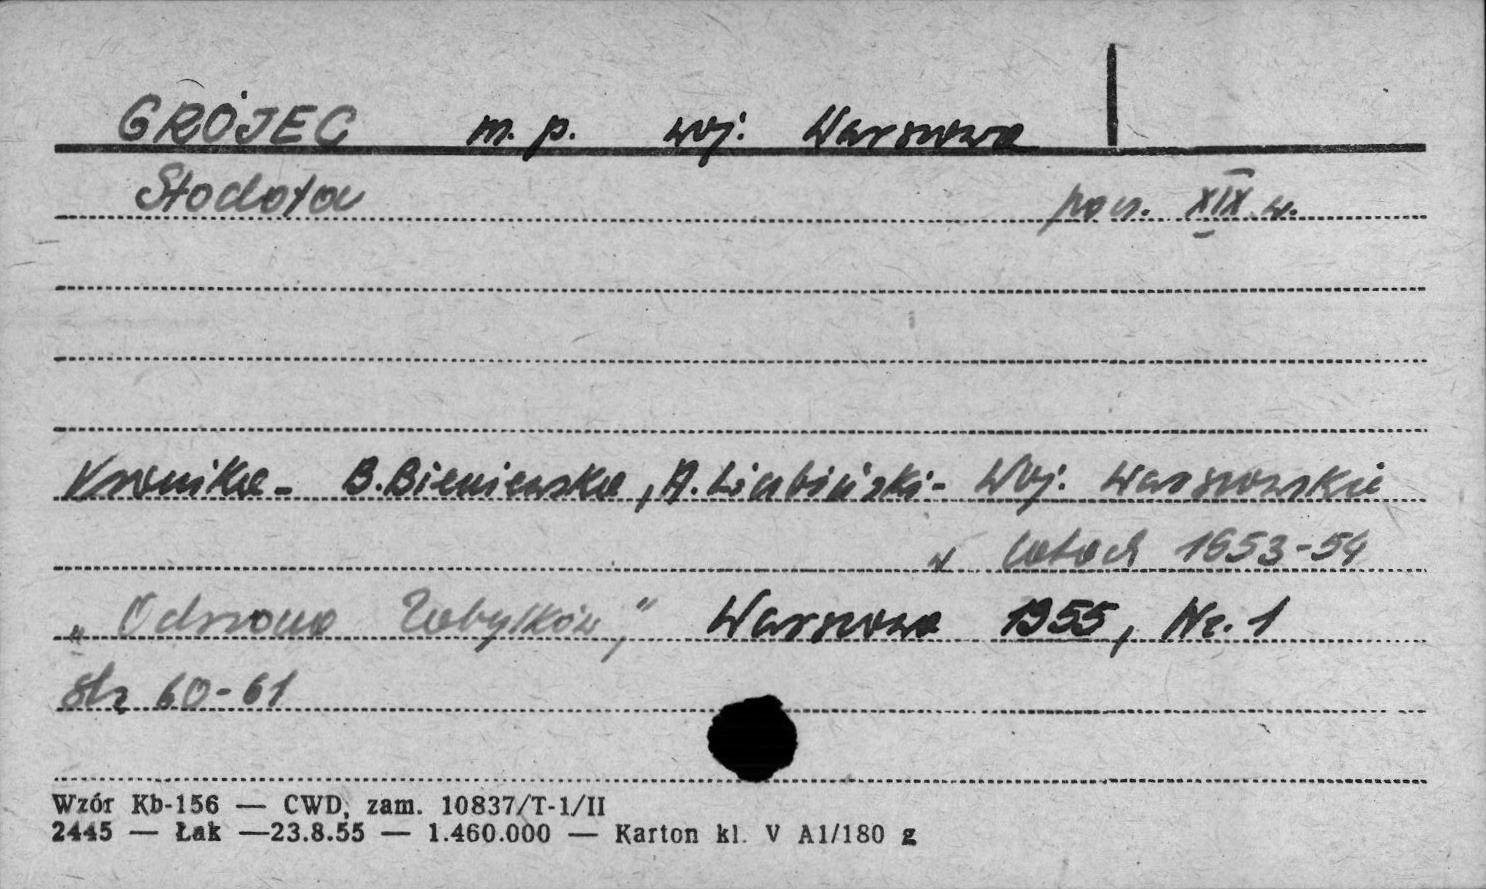 GRÓJEC m. p. woj. Warszawa
Stodoła pocz. XIX w.
Kronika - B. Bieniewska, A. Liubiński - Woj. Warszawskie
w latach 1953-54
"Ochrona Zabytków," Warszawa 1955, Nr. 1
Str 60-61
Wzór Kb-156 — CWD, zam. 10837/T-1/II
2445 — Łak —23.8.55 — 1.460.000 — Karton kl. V A1/180 g